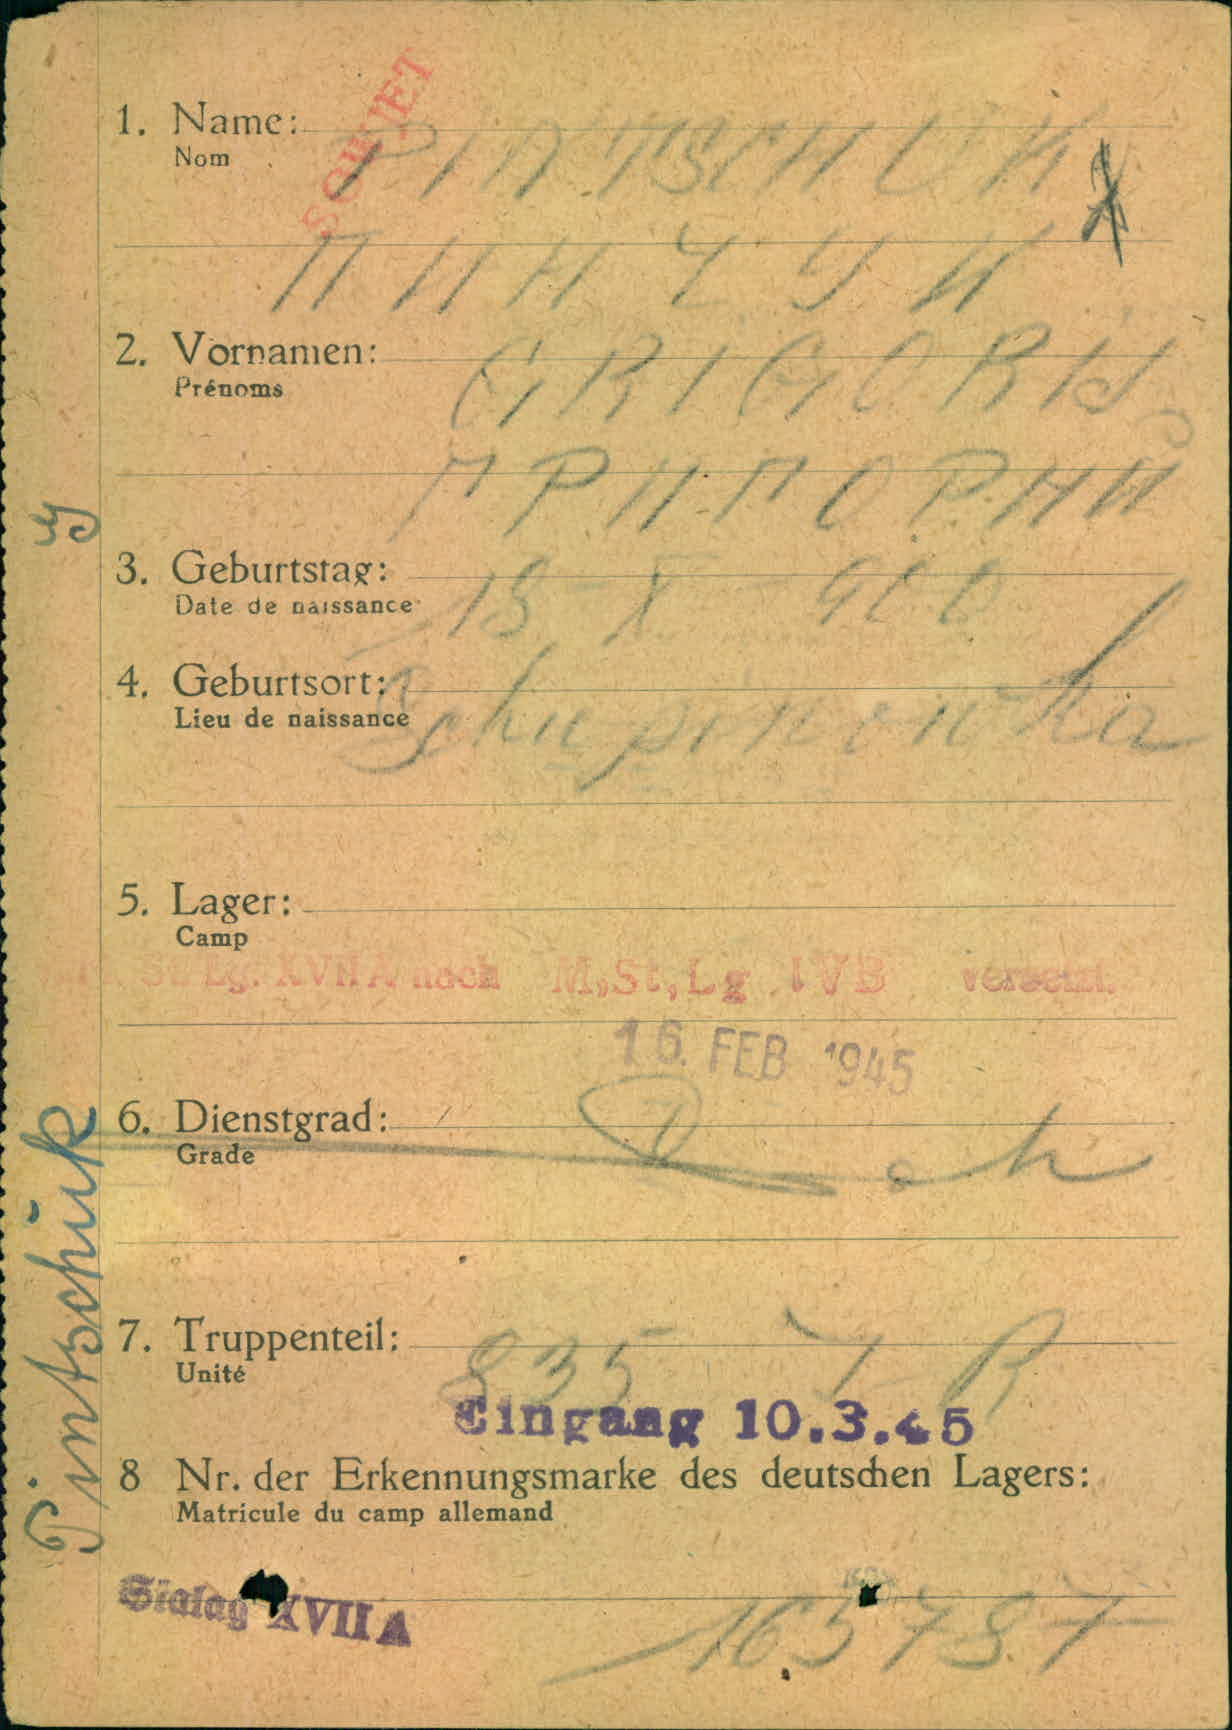 SOWJET
1. Name: PINTSCHUK
Nom
ПИНЧУК
2. Vornamen: GRIGORIJ
Prénoms
ГРИГОРИЙ
3. Geburtstag: 18 – X – 900
Date de naissance
4. Geburtsort:
Lieu de naissance
5. Lager:
Camp
St. Lg. XVII A nach M,St,Lg IVB versetzt.
16. FEB 1945
6. Dienstgrad:
Grade
7. Truppenteil: 835 I R
Unité
Eingang 10.3.45
8 Nr. der Erkennungsmarke des deutschen Lagers:
Matricule du camp allemand
Stalag XVII A 165787
Pintschuk